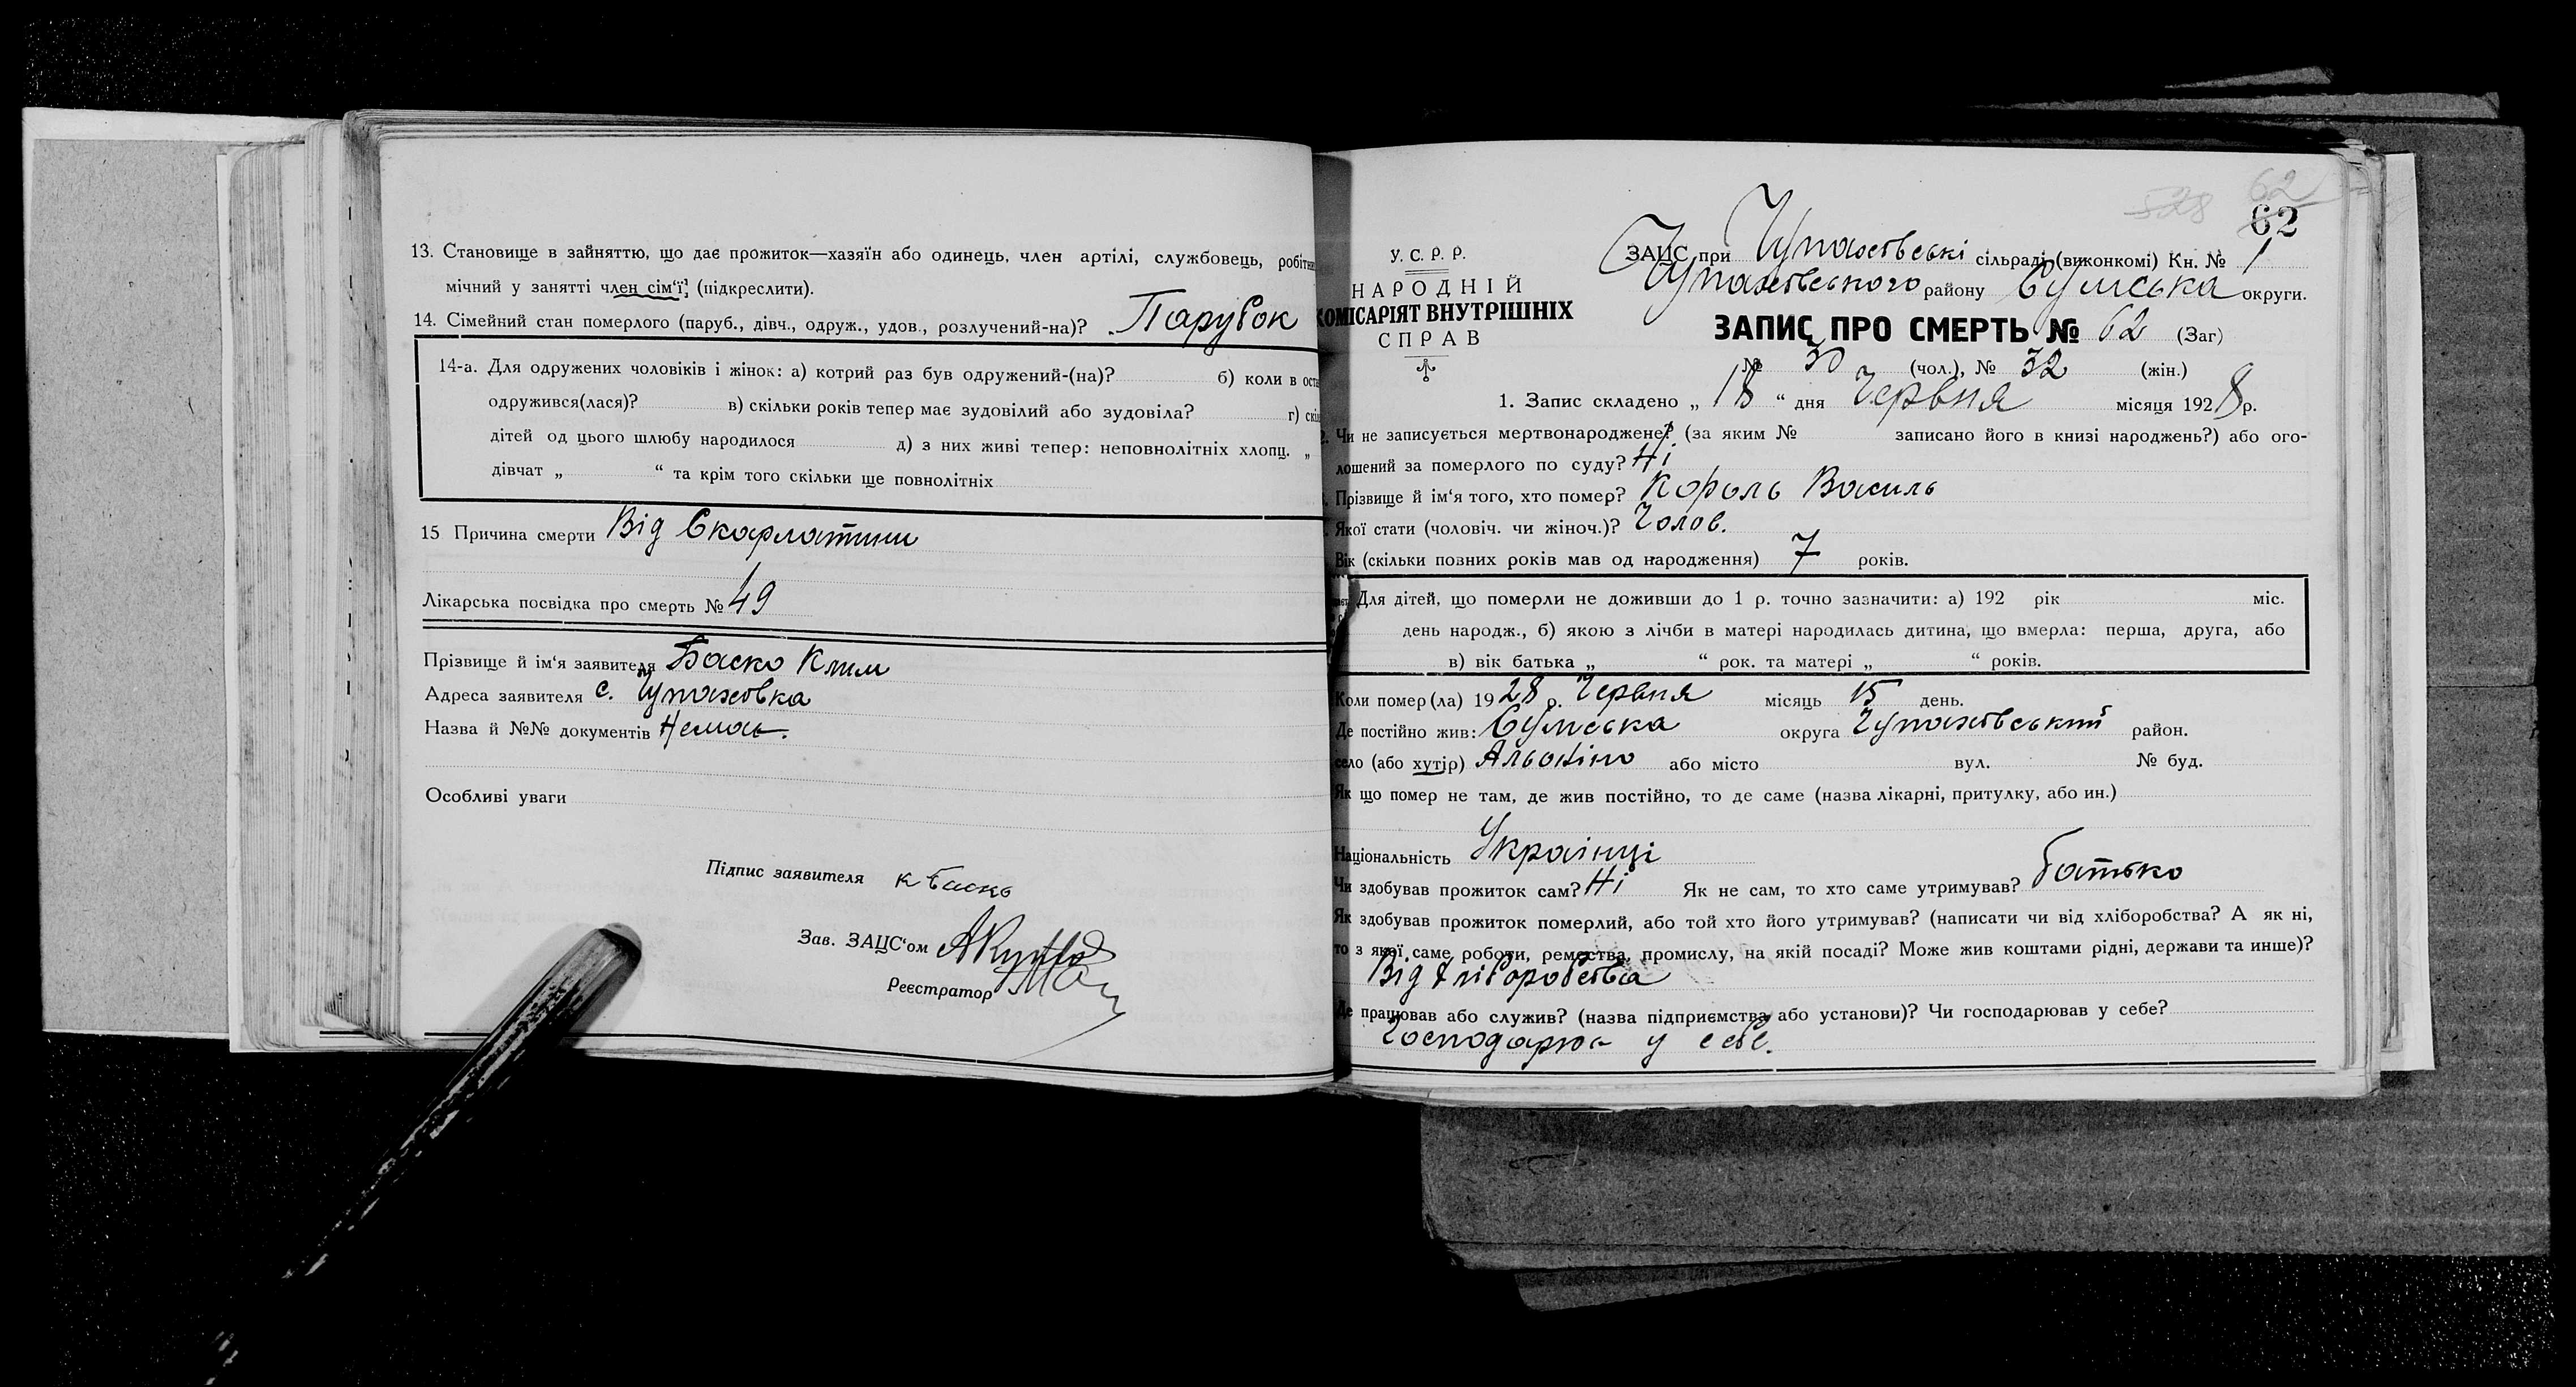 13. Становище в зайняттю, що дає прожиток—хазяїн або одинець, член артілі, службовець, робітн
мічний у занятті член сім'ї (підкреслити).
14. Сімейний стан померлого (паруб., дівч., одруж., удов., розлучений-на)? Парубок
14-а. Для одружених чоловіків і жінок: а) котрий раз був одружений-(на)? б) коли в оста
одружився(лася)? в) скільки років тепер має зудовілий або зудовіла? г) скі
дітей од цього шлюбу народилося д) з них живі тепер: неповнолітніх хлопц. „
дівчат „ “ та крім того скільки ще повнолітніх
15 Причина смерти Від Скарлатини
Лікарська посвідка про смерть № 49
Прізвище й ім'я заявителя Баско Клим
Адреса заявителя с. Чупахівка
Назва й №№ документів Немає.
Особливі уваги
Підпис заявителя К Баско
Зав. ЗАЦС'ом
Реєстратор
528 62
62
У. С. Р. Р.
НАРОДНІЙ
КОМІСАРІЯТ ВНУТРІШНІХ
СПРАВ
ЗАЦС при Чупахівські сільраді (виконкомі) Кн. № 1
Чупахівського району Сумська округи.
ЗАПИС ПРО СМЕРТЬ № 62 (Заг)
№ 30 (чол.), № 32 (жін.)
1. Запис складено „ 18 “ дня Червня місяця 1928 р.
2. Чи не записується мертвонароджене? (за яким № записано його в книзі народжень?) або ого-
лошений за померлого по суду? Ні
Прізвище й ім'я того, хто помер? Король Василь
Якої стати (чоловіч. чи жіноч.)? Чолов.
Вік (скільки повних років мав од народження) 7 років.
Для дітей, що померли не доживши до 1 р. точно зазначити: а) 192 рік міс.
день народж., б) якою з лічби в матері народилась дитина, що вмерла: перша, друга, або
в) вік батька „ “ рок. та матері „ “ років.
Коли помер(ла) 1928 р. Червня місяць 15 день.
Де постійно жив: Сумська округа Чупахівський район.
село (або хутір) Альохіно або місто вул. № буд.
Як що помер не там, де жив постійно, то де саме (назва лікарні, притулку, або ин.)
Національність Українці
Чи здобував прожиток сам? Ні Як не сам, то хто саме утримував? батько
Як здобував прожиток померлий, або той хто його утримував? (написати чи від хліборобства? А як ні,
то з якої саме роботи, ремества, промислу, на якій посаді? Може жив коштами рідні, держави та инше)?
Від хліборобства
Де працював або служив? (назва підприємства або установи)? Чи господарював у себе?
Господарює у себе.